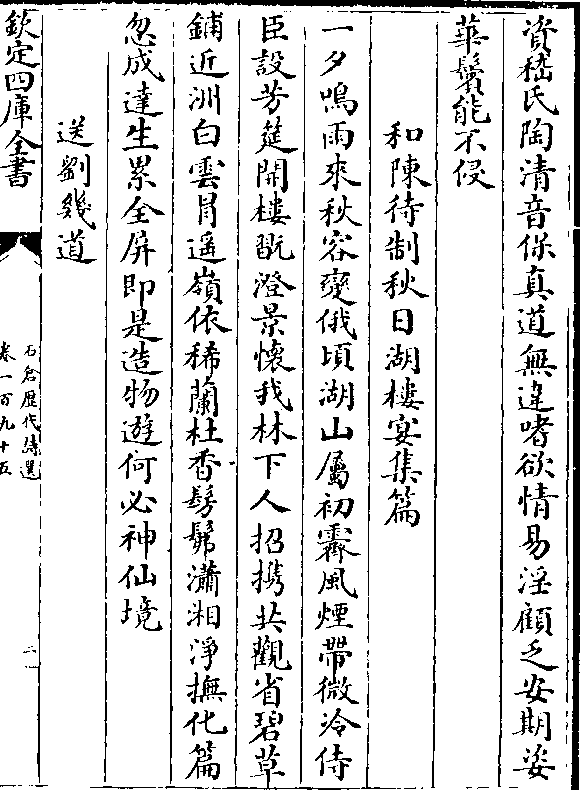 資嵇氏陶清音保真道無違嗜欲情易淫顧乏安期姿
華鬢能不侵
和陳待制秋日湖樓宴集篇
一夕鳴雨來秋容變俄頃湖山屬初霽風煙帶微冷侍
臣設芳筵開樓翫澄景懷我林下人招攜共觀省碧草
鋪近洲白雲冒遥嶺依稀蘭杜香髣髴瀟湘淨撫化篇
忽成達生累全屏即是造物遊何必神仙境
送劉幾道
欽定四庫全書
石倉歴代詩選
卷一百九十五